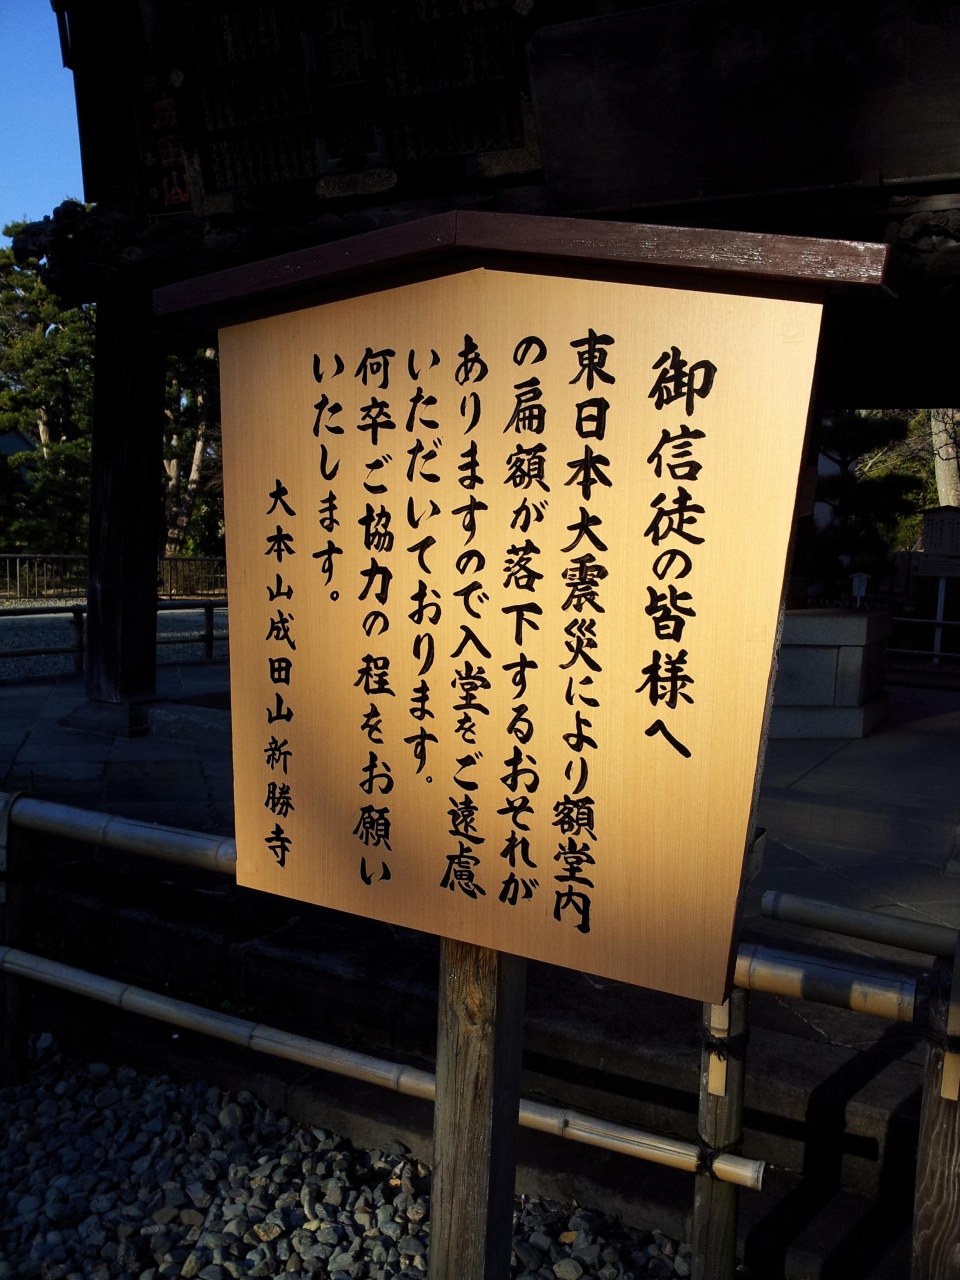 御信徒の皆様へ
東日本大震災により額堂内
の扁額が落下するおそれが
ありますので入堂をご遠慮
いただいております。
何卒ご協力の程をお願い
いたします。
大本山成田山新勝寺